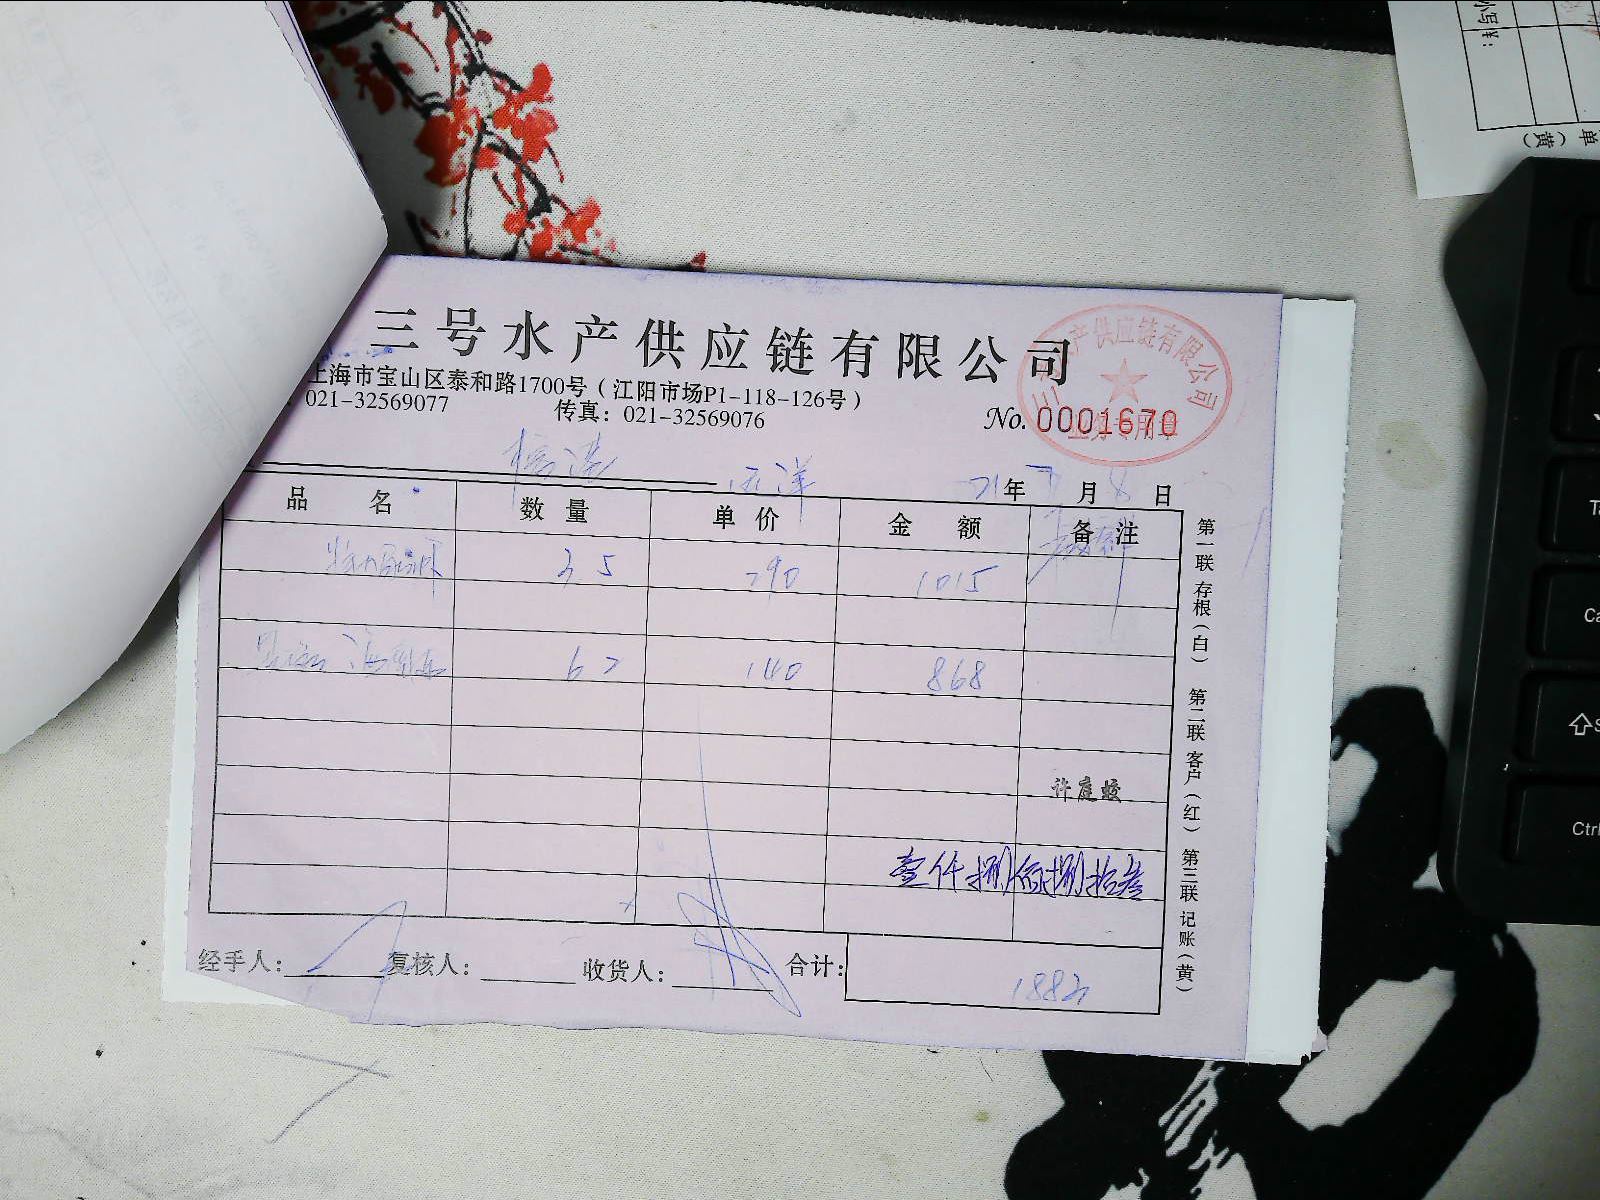 三号水产供应链有限公司
上海市宝山区泰和路1700号（江阳市场P1-118-126号）
021-32569077 传真：021-32569076
No. 0001670
三号水产供应链有限公司
业务专用章
21年 月8日
品名 数量 单价 金额 备注
35 290 1015
62 140 868
许庭蛟
壹仟捌佰捌拾叁
经手人： 复核人： 收货人： 合计： 1883
第一联 存根（白） 第二联 客户（红） 第三联 记账（黄）
小写¥：
单（黄）
Ctrl